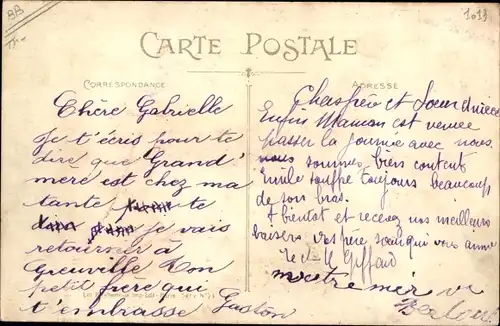 BB
1013
CARTE POSTALE
CORRESPONDANCE
ADRESSE
Chère Gabrielle
Je t'écris pour te
dire que Grand'
mère est chez ma
tante je te
dirai je vais
retourner à
Greuville Ton
petit frère qui
t'embrasse Gaston
Chers frère et Soeur
Enfin Maman est venue
passer la journée avec nous.
nous sommes bien contents
Emile souffre toujours beaucoup
de son bras.
A bientot et recevez nos meilleurs
baisers vos qui vous aime
et